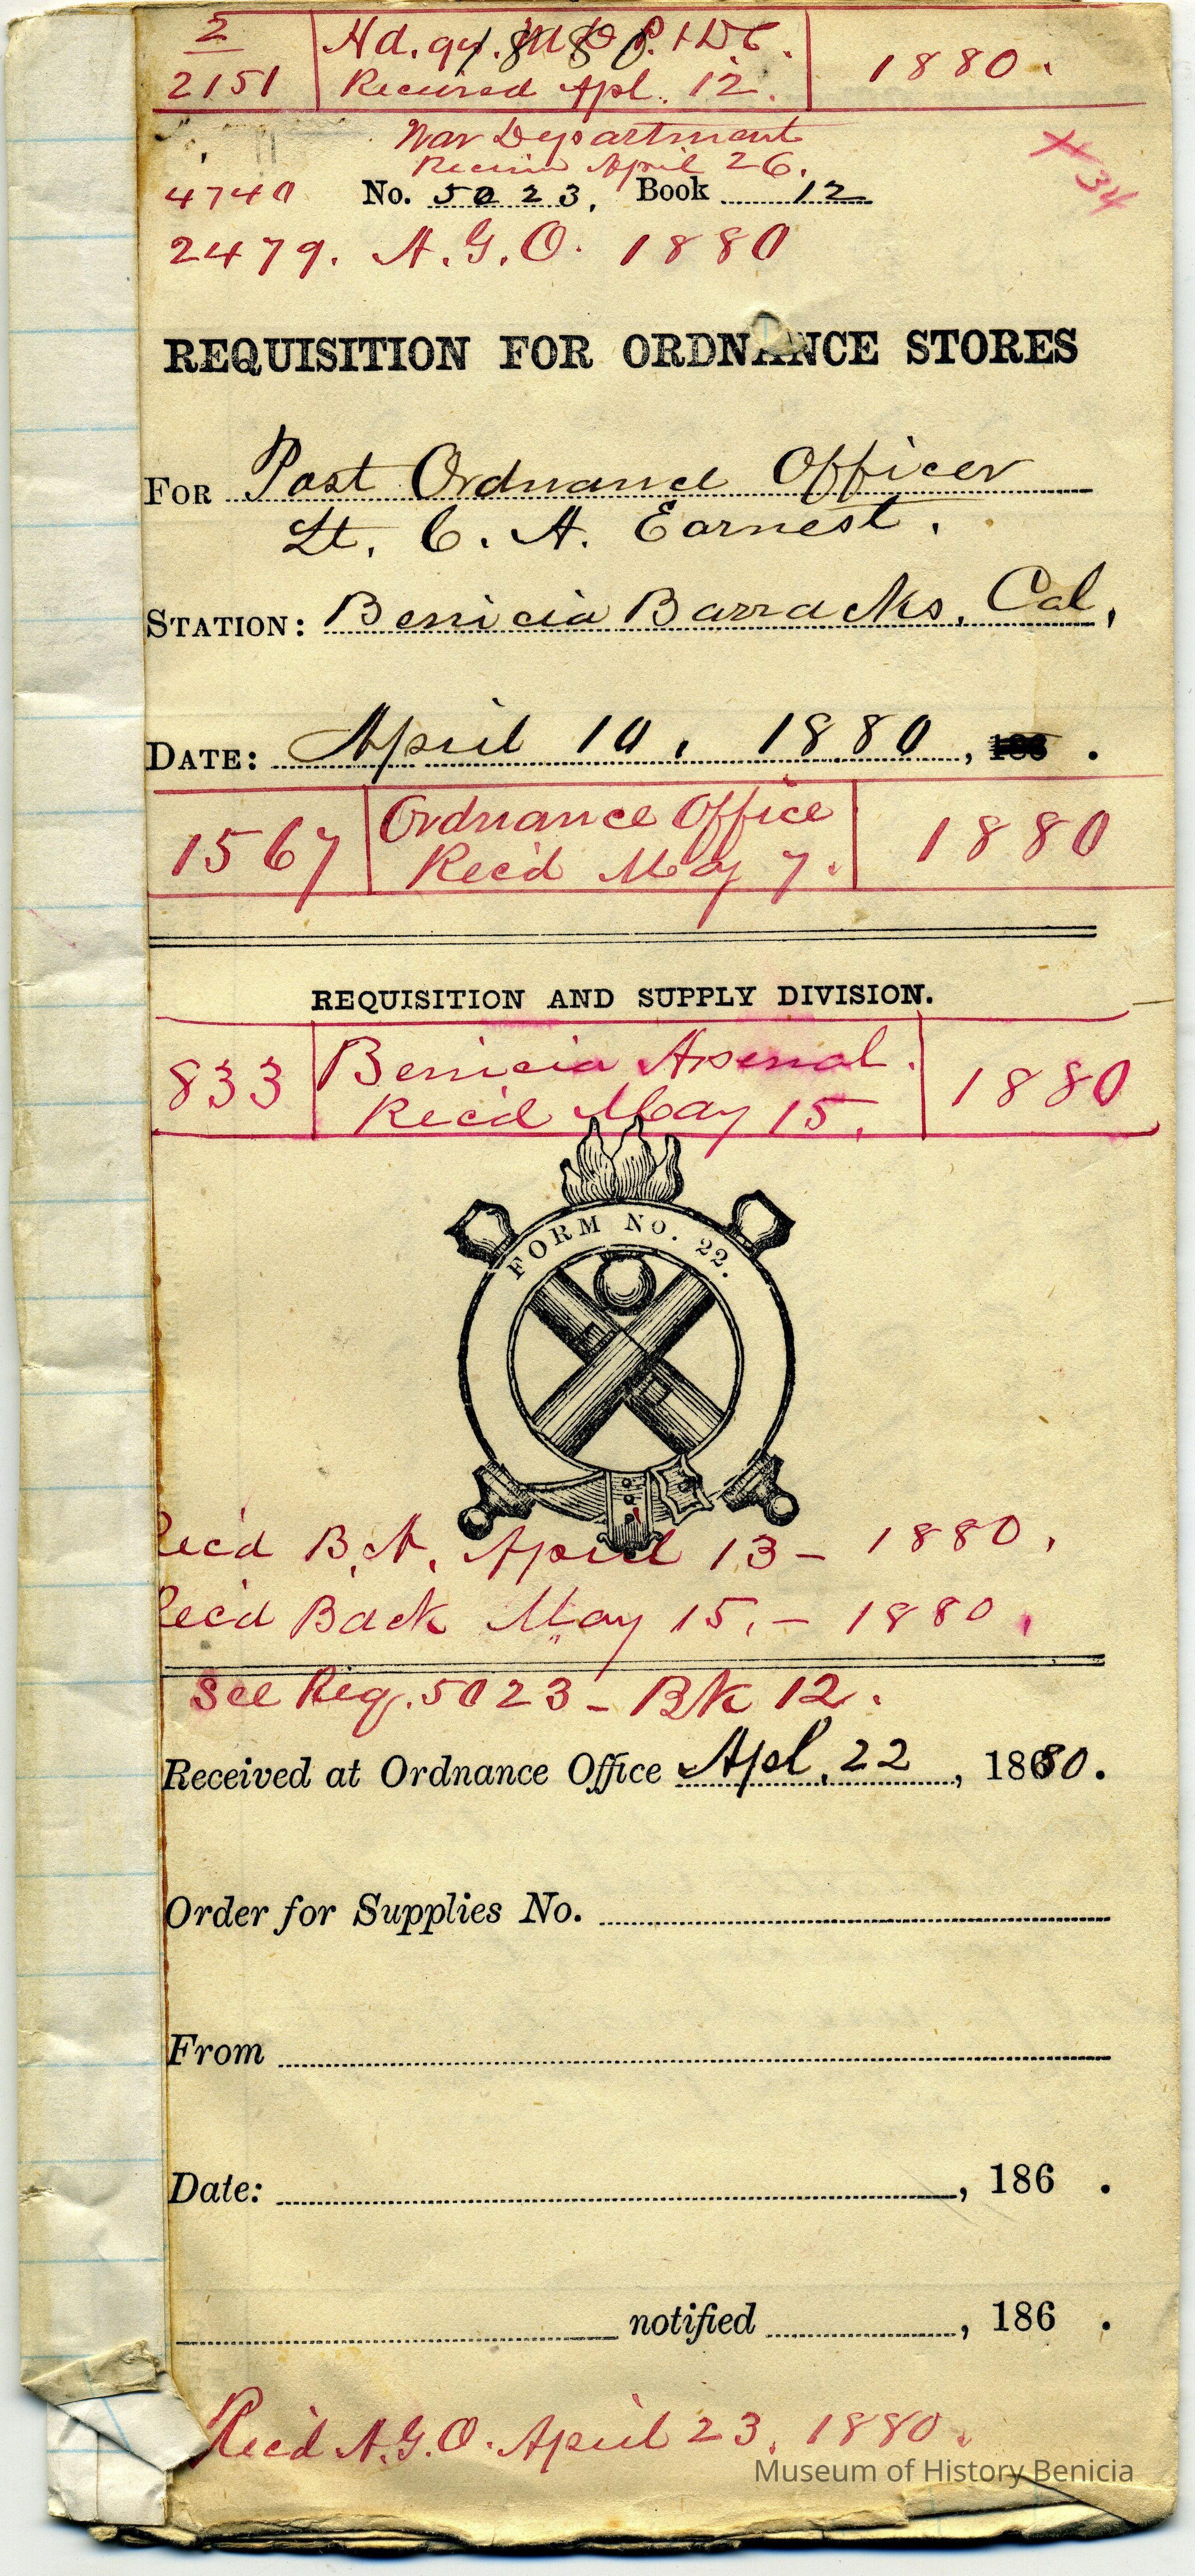 2
2151
Hd. qr. M. D. P. & D C.
1880
Received Apl. 12.
1880.
War Department
Receiv April 26.
4740
No. 5023, Book 12
X 34
2479. A.G.O. 1880
REQUISITION FOR ORDNANCE STORES
FOR Post Ordnance Officer
Lt. C. A. Earnest.
STATION: Benicia Barracks, Cal,
DATE: April 10, 1880, 186 .
1567
Ordnance Office
Rec'd May 7.
1880
REQUISITION AND SUPPLY DIVISION.
833
Benicia Arsenal.
Rec'd May 15.
1880
FORM No. 22.
Rec'd B.A. April 13 - 1880.
Rec'd Back May 15. - 1880.
See Reg. 5023 - Bk 12.
Received at Ordnance Office Apl. 22, 18680.
Order for Supplies No.
From
Date: , 186 .
notified , 186 .
Rec'd A.G.O. April 23, 1880.
Museum of History Benicia